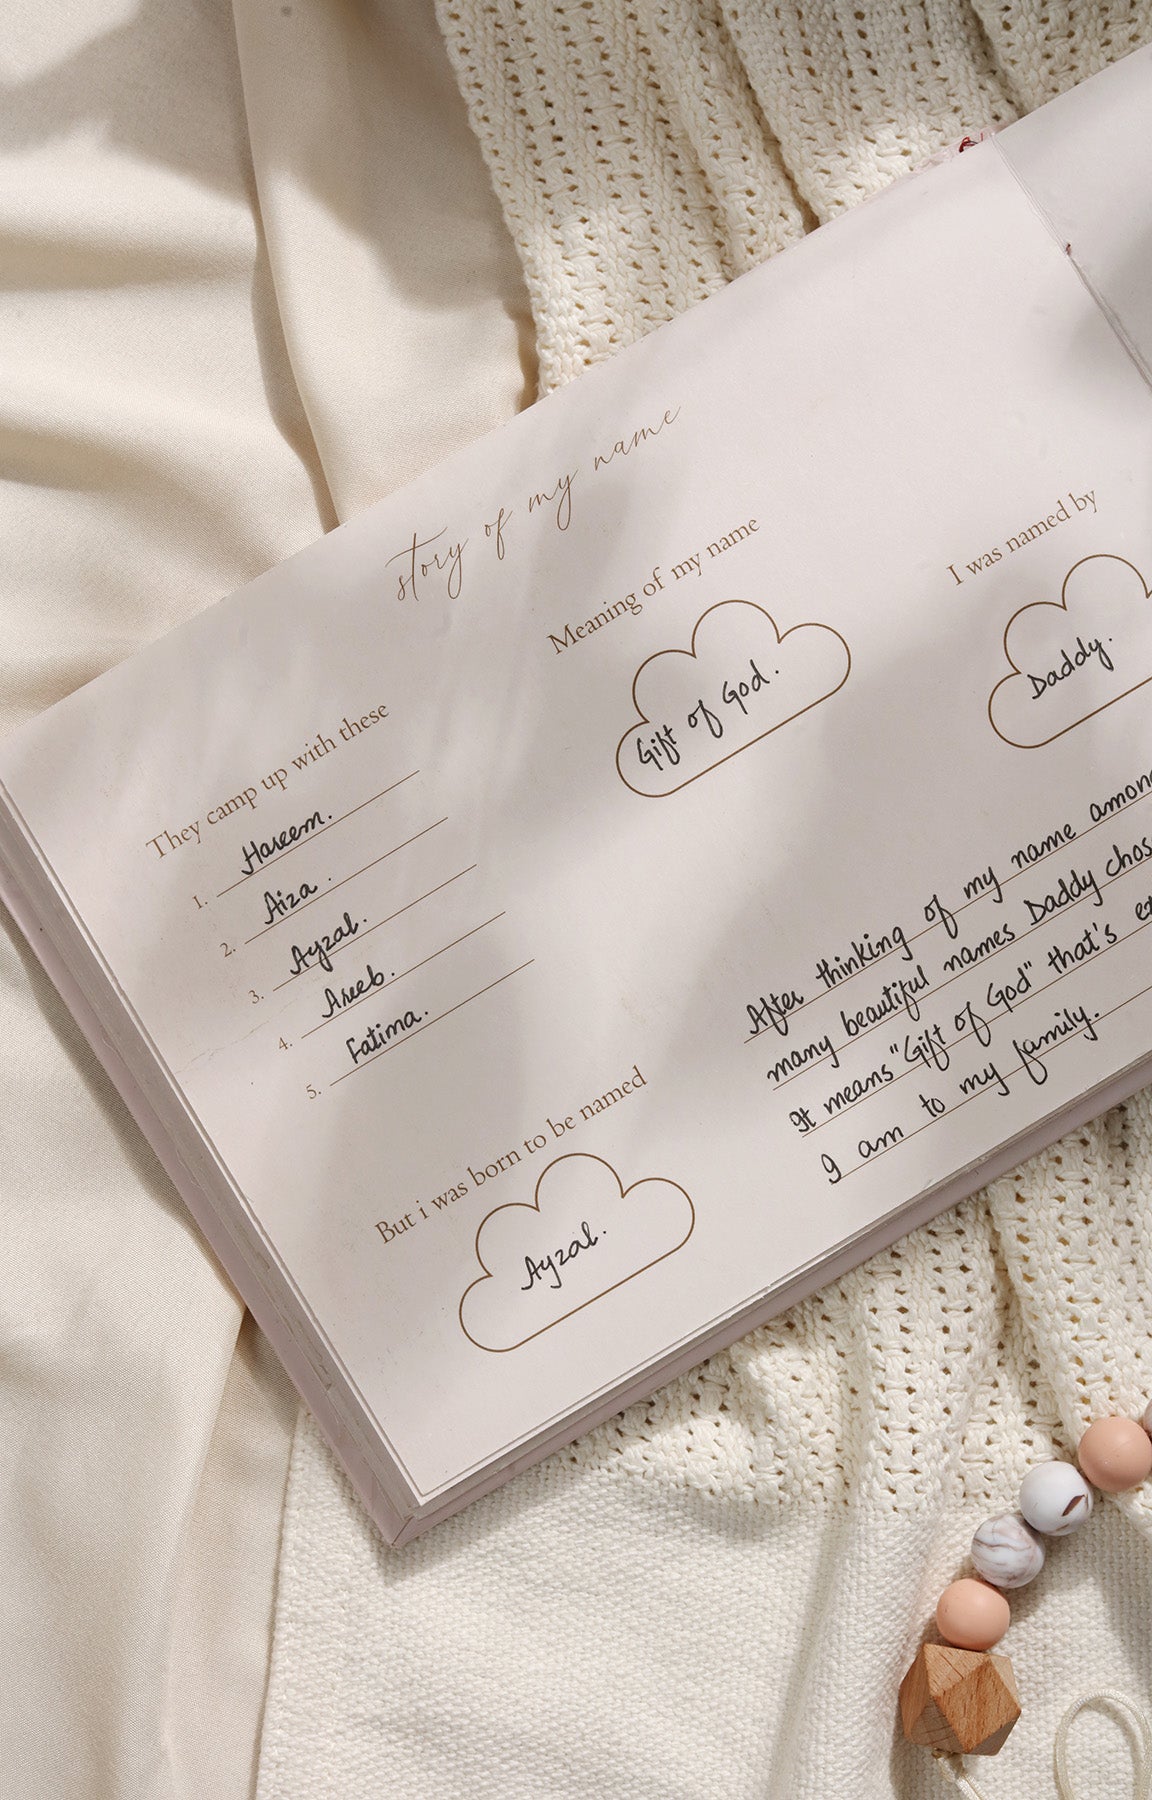 story of my name
They camp up with these
1. Hareem.
2. Aiza.
3. Ayzal.
4. Areeb.
5. Fatima.
But i was born to be named
Ayzal.
Meaning of my name
Gift of God.
I was named by
Daddy.
After thinking of my name
many beautiful names Daddy
It means "Gift of God" that's
I am to my family.